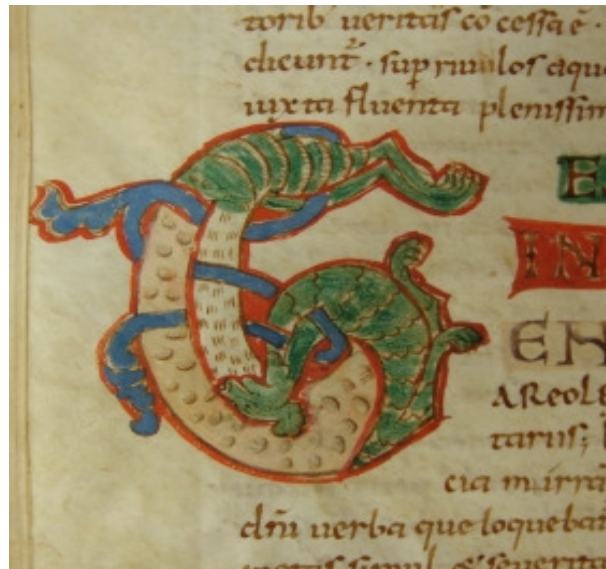 torib' ueritas cō cessa ē ·
dicunt̄ · sup riuulos aque
iuxta fluenta plenissim
G
E
IN
EN
AReole
tarus;
cia mirrā
dn̄i uerba que loqueba